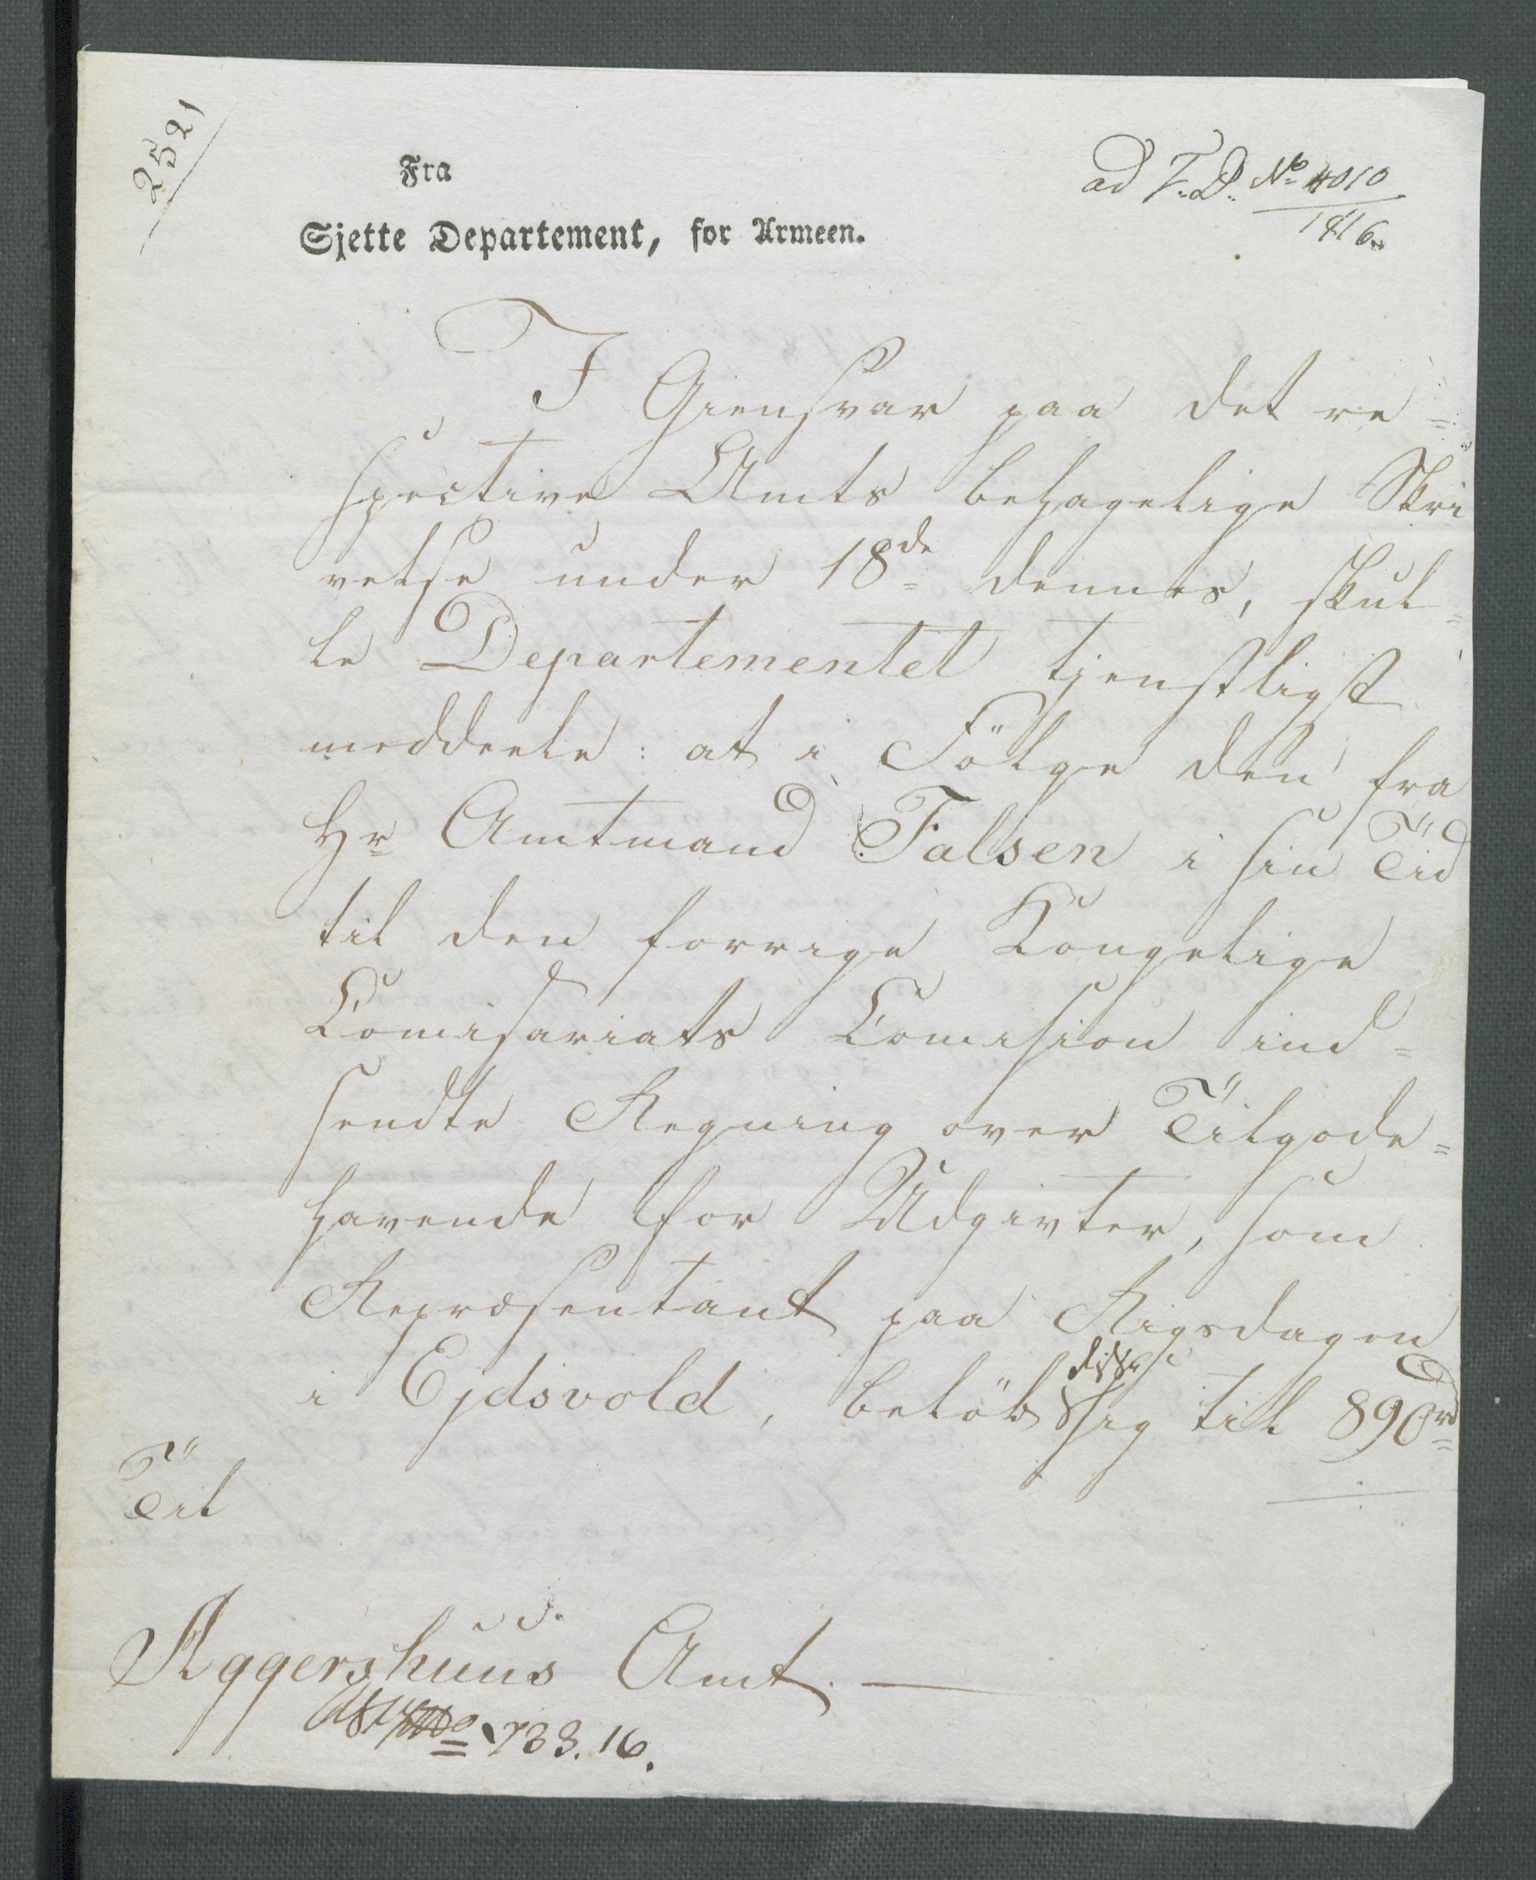 2521
ad F. D. No 4010
1816.
Fra
Sjette Departement, for Armeen.
I Giensvar paa det re=
spective Amts behagelige Skri
velse under 18de dennes, skul=
le Departementet tjenstligst
meddeele: at i Fölge den fra
Hr Amtmand Falsen i sin Tid
til den forrige Kongelige
Comisariats Comision ind=
sendte Regning over Tilgode=
havende for Udgivter, som
Repræsentant paa Rigsdagen
i Ejdsvold, belöb disse sig til 890rd
Til
Aggershuus Amt.
733. 16.